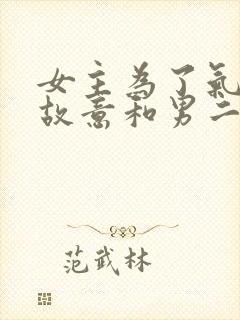 女主為了氣
故意和男二
范武林